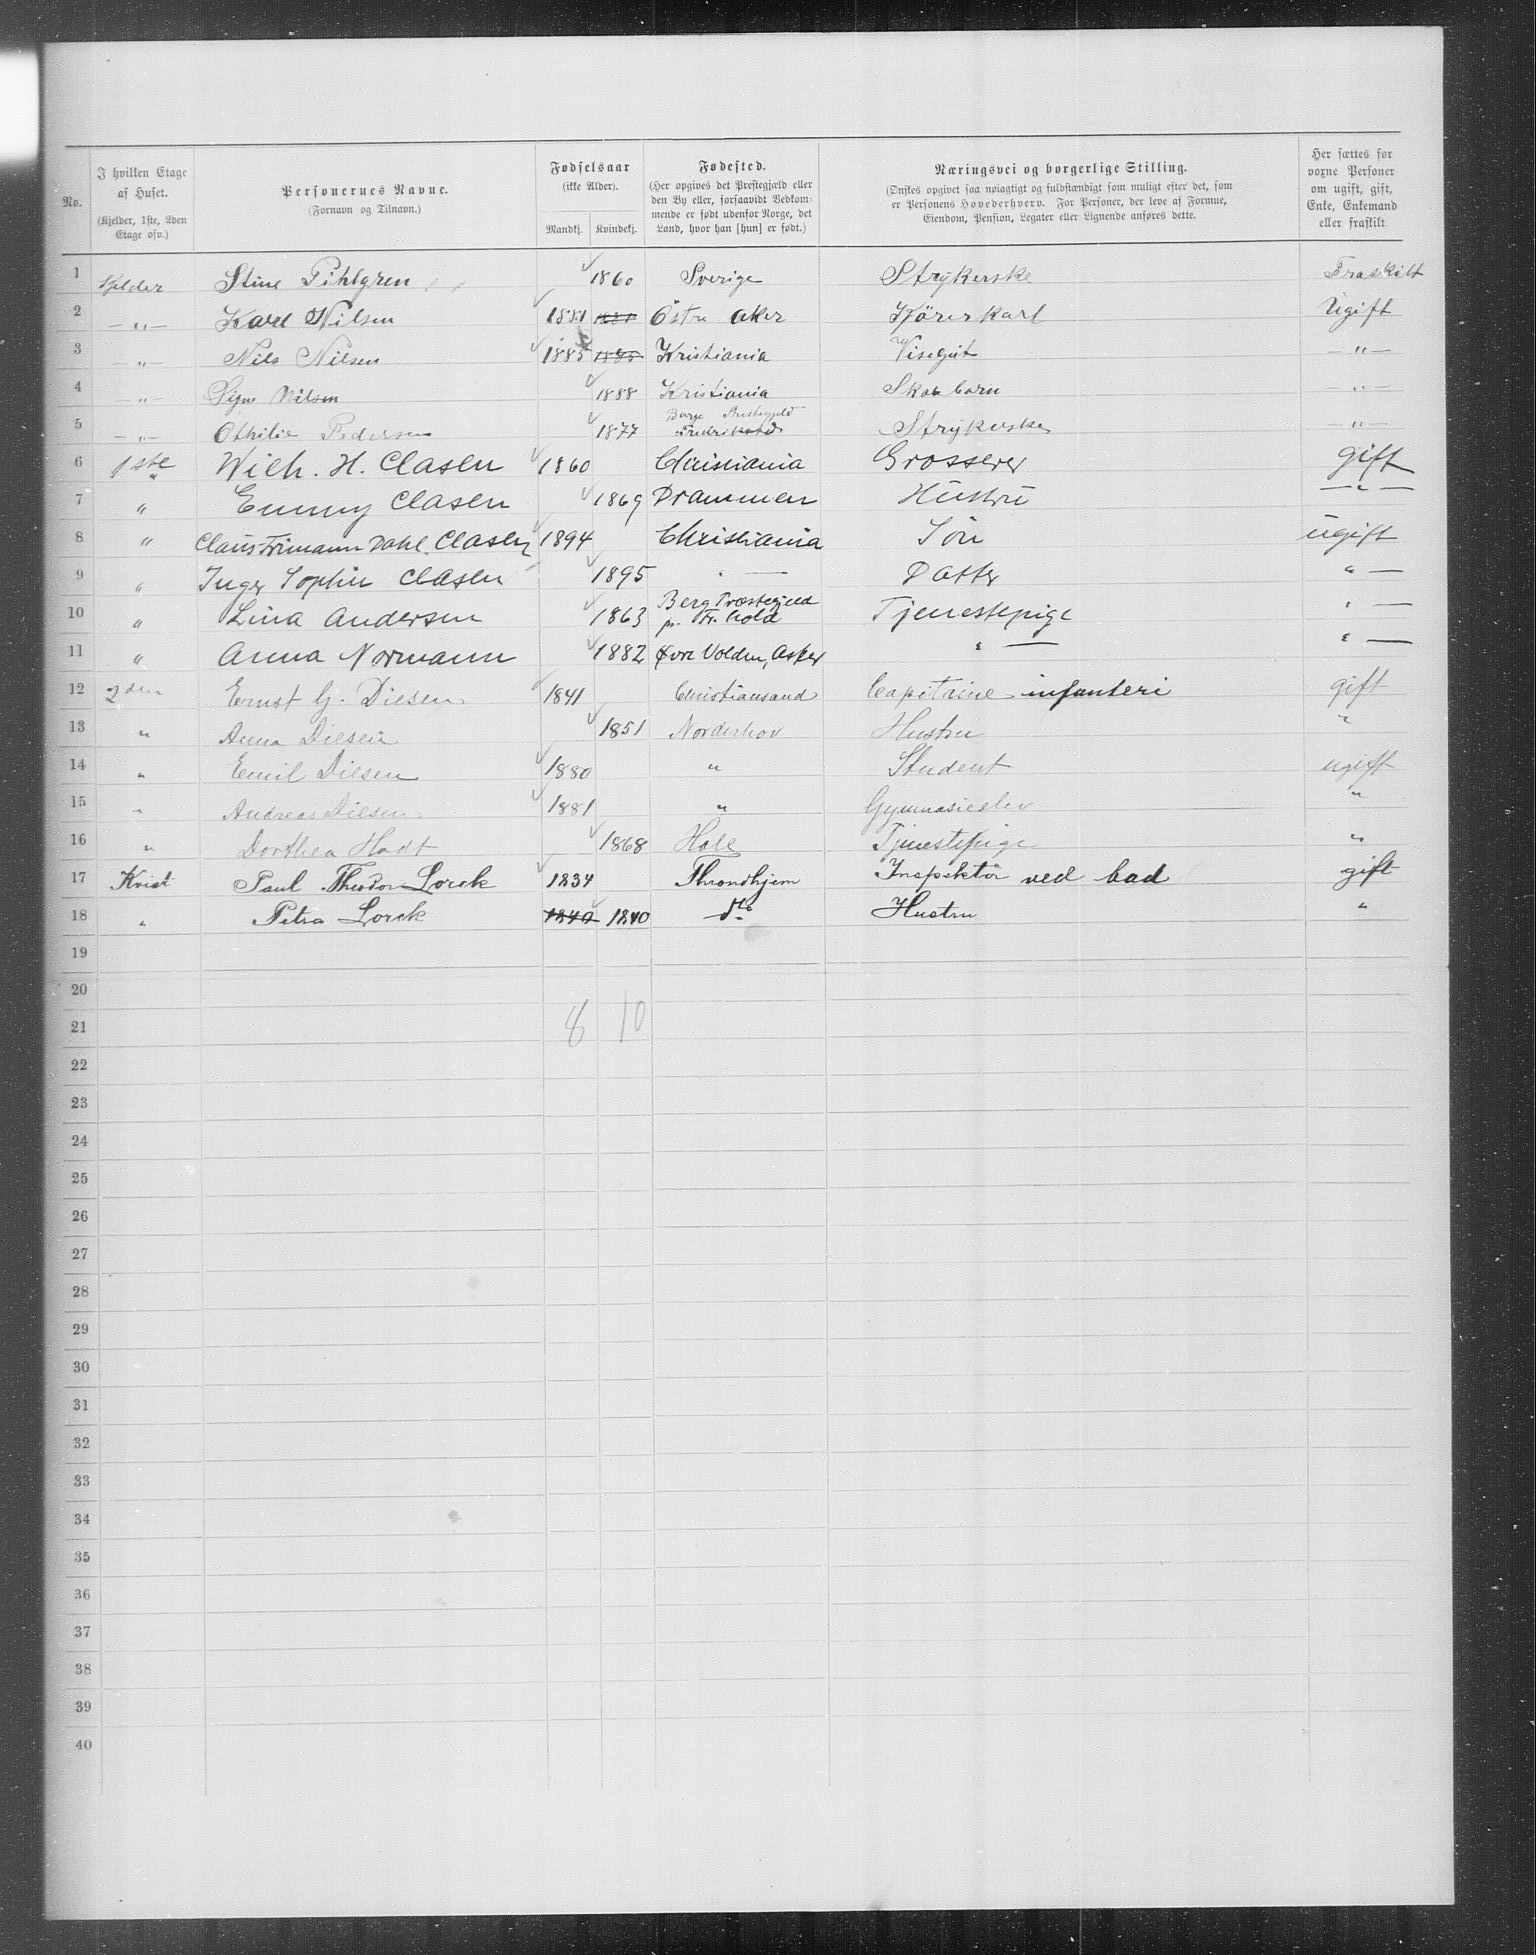 No.
I hvilken Etage af Huset.
(Kjelder, 1ste, 2den Etage osv.)
Personernes Navne.
(Fornavn og Tilnavn.)
Fødselsaar
(ikke Alder).
Mandkj. Kvindekj.
Fødested.
(Her opgives det Prestegjæld eller den By eller, forsaavidt Vedkommende er født udenfor Norge, det Land, hvor han [hun] er født.)
Næringsvei og borgerlige Stilling.
(Ønskes opgivet saa nøiagtigt og fuldstændigt som muligt efter det, som er Personens Hovederhverv. For Personer, der leve af Formue, Eiendom, Pension, Legater eller Lignende anføres dette.
Her sættes for voxne Personer om ugift, gift, Enke, Enkemand eller fraskilt.
1 Kjelder Stine Pihlgren 1860 Sverige Strykerske Fraskilt
2 —"— Karl Nilsen 1881 1881 Östre Aker Kjörerkarl Ugift
3 —"— Nils Nilsen 1885 1885 Kristiania Visegut —"—
4 —"— Nilsen 1888 Kristiania Skolebarn —"—
5 —"— Othilie Pedersen 1877 Borge Prestegjeld Fredrikstad Strykerske —"—
6 1ste Wilh. H. Clasen 1860 Christiania Grosserer gift
7 " Emmy Clasen 1869 Drammen Hustru —"—
8 " Claus Frimann Dahl Clasen 1894 Christiania Sön ugift
9 " Inger Sophie Clasen 1895 " — Datter " —
10 " Lina Andersen 1863 Berg Præstegjeld pr. Fr.hold Tjenestepige " —
11 " Anna Normann 1882 Øvre Volden, Asker " — " —
12 2den Ernst G. Diesen 1841 Christiansand Capitaine infanteri gift
13 " Anna Diesen 1851 Norderhov Hustru "
14 " Emil Diesen 1880 " Student ugift
15 " Andreas Diesen 1881 " Gymnasieelev "
16 " Dorthea Hadt 1868 Hole Tjenestepige "
17 Kvist Paul Theodor Lorck 1834 Throndhjem Inspektör ved bad gift
18 " Petra Lorck 1840 1840 do Hustru "
19
20
21 8 10
22
23
24
25
26
27
28
29
30
31
32
33
34
35
36
37
38
39
40